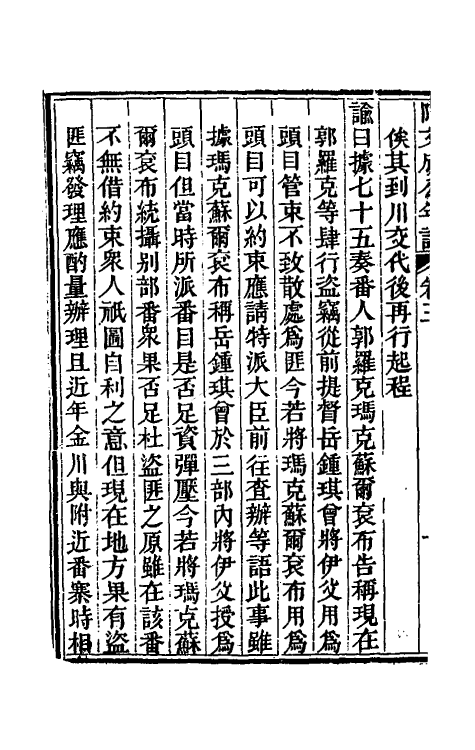 阿文成公年譜 卷三
俟其到川交代後再行起程
諭曰據七十五奏番人郭羅克瑪克蘇爾袞布告稱現在
郭羅克等肆行盜竊從前提督岳鍾琪曾將伊父用爲
頭目管束不致散處爲匪今若將瑪克蘇爾袞布用爲
頭目可以約束應請特派大臣前往查辦等語此事雖
據瑪克蘇爾袞布稱岳鍾琪曾於三部內將伊父授爲
頭目但當時所派番目是否足資彈壓今若將瑪克蘇
爾袞布統攝别部番衆果否足杜盜匪之原雖在該番
不無借約束衆人祇圖自利之意但現在地方果有盜
匪竊發理應酌量辦理且近年金川與附近番寨時相